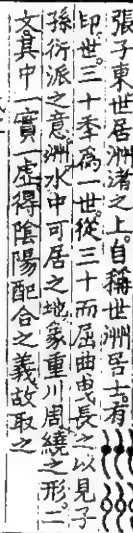 張子東世居洲渚之上自稱世洲居士有
印世三十年爲一世從三十而屈曲曳長之以見子
孫衍派之意洲水中可居之地象重川周繞之形二
文其中一實一虛得陰陽配合之義故取之